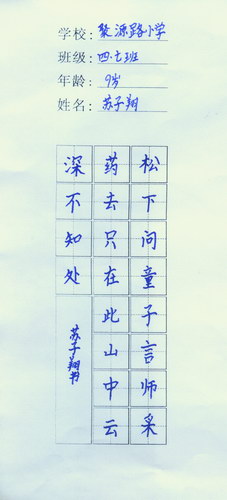 学校:聚源路小学
班级:四.七班
年龄:9岁
姓名:苏子翔
松下问童子言师采
药去只在此山中云
深不知处
苏子翔书